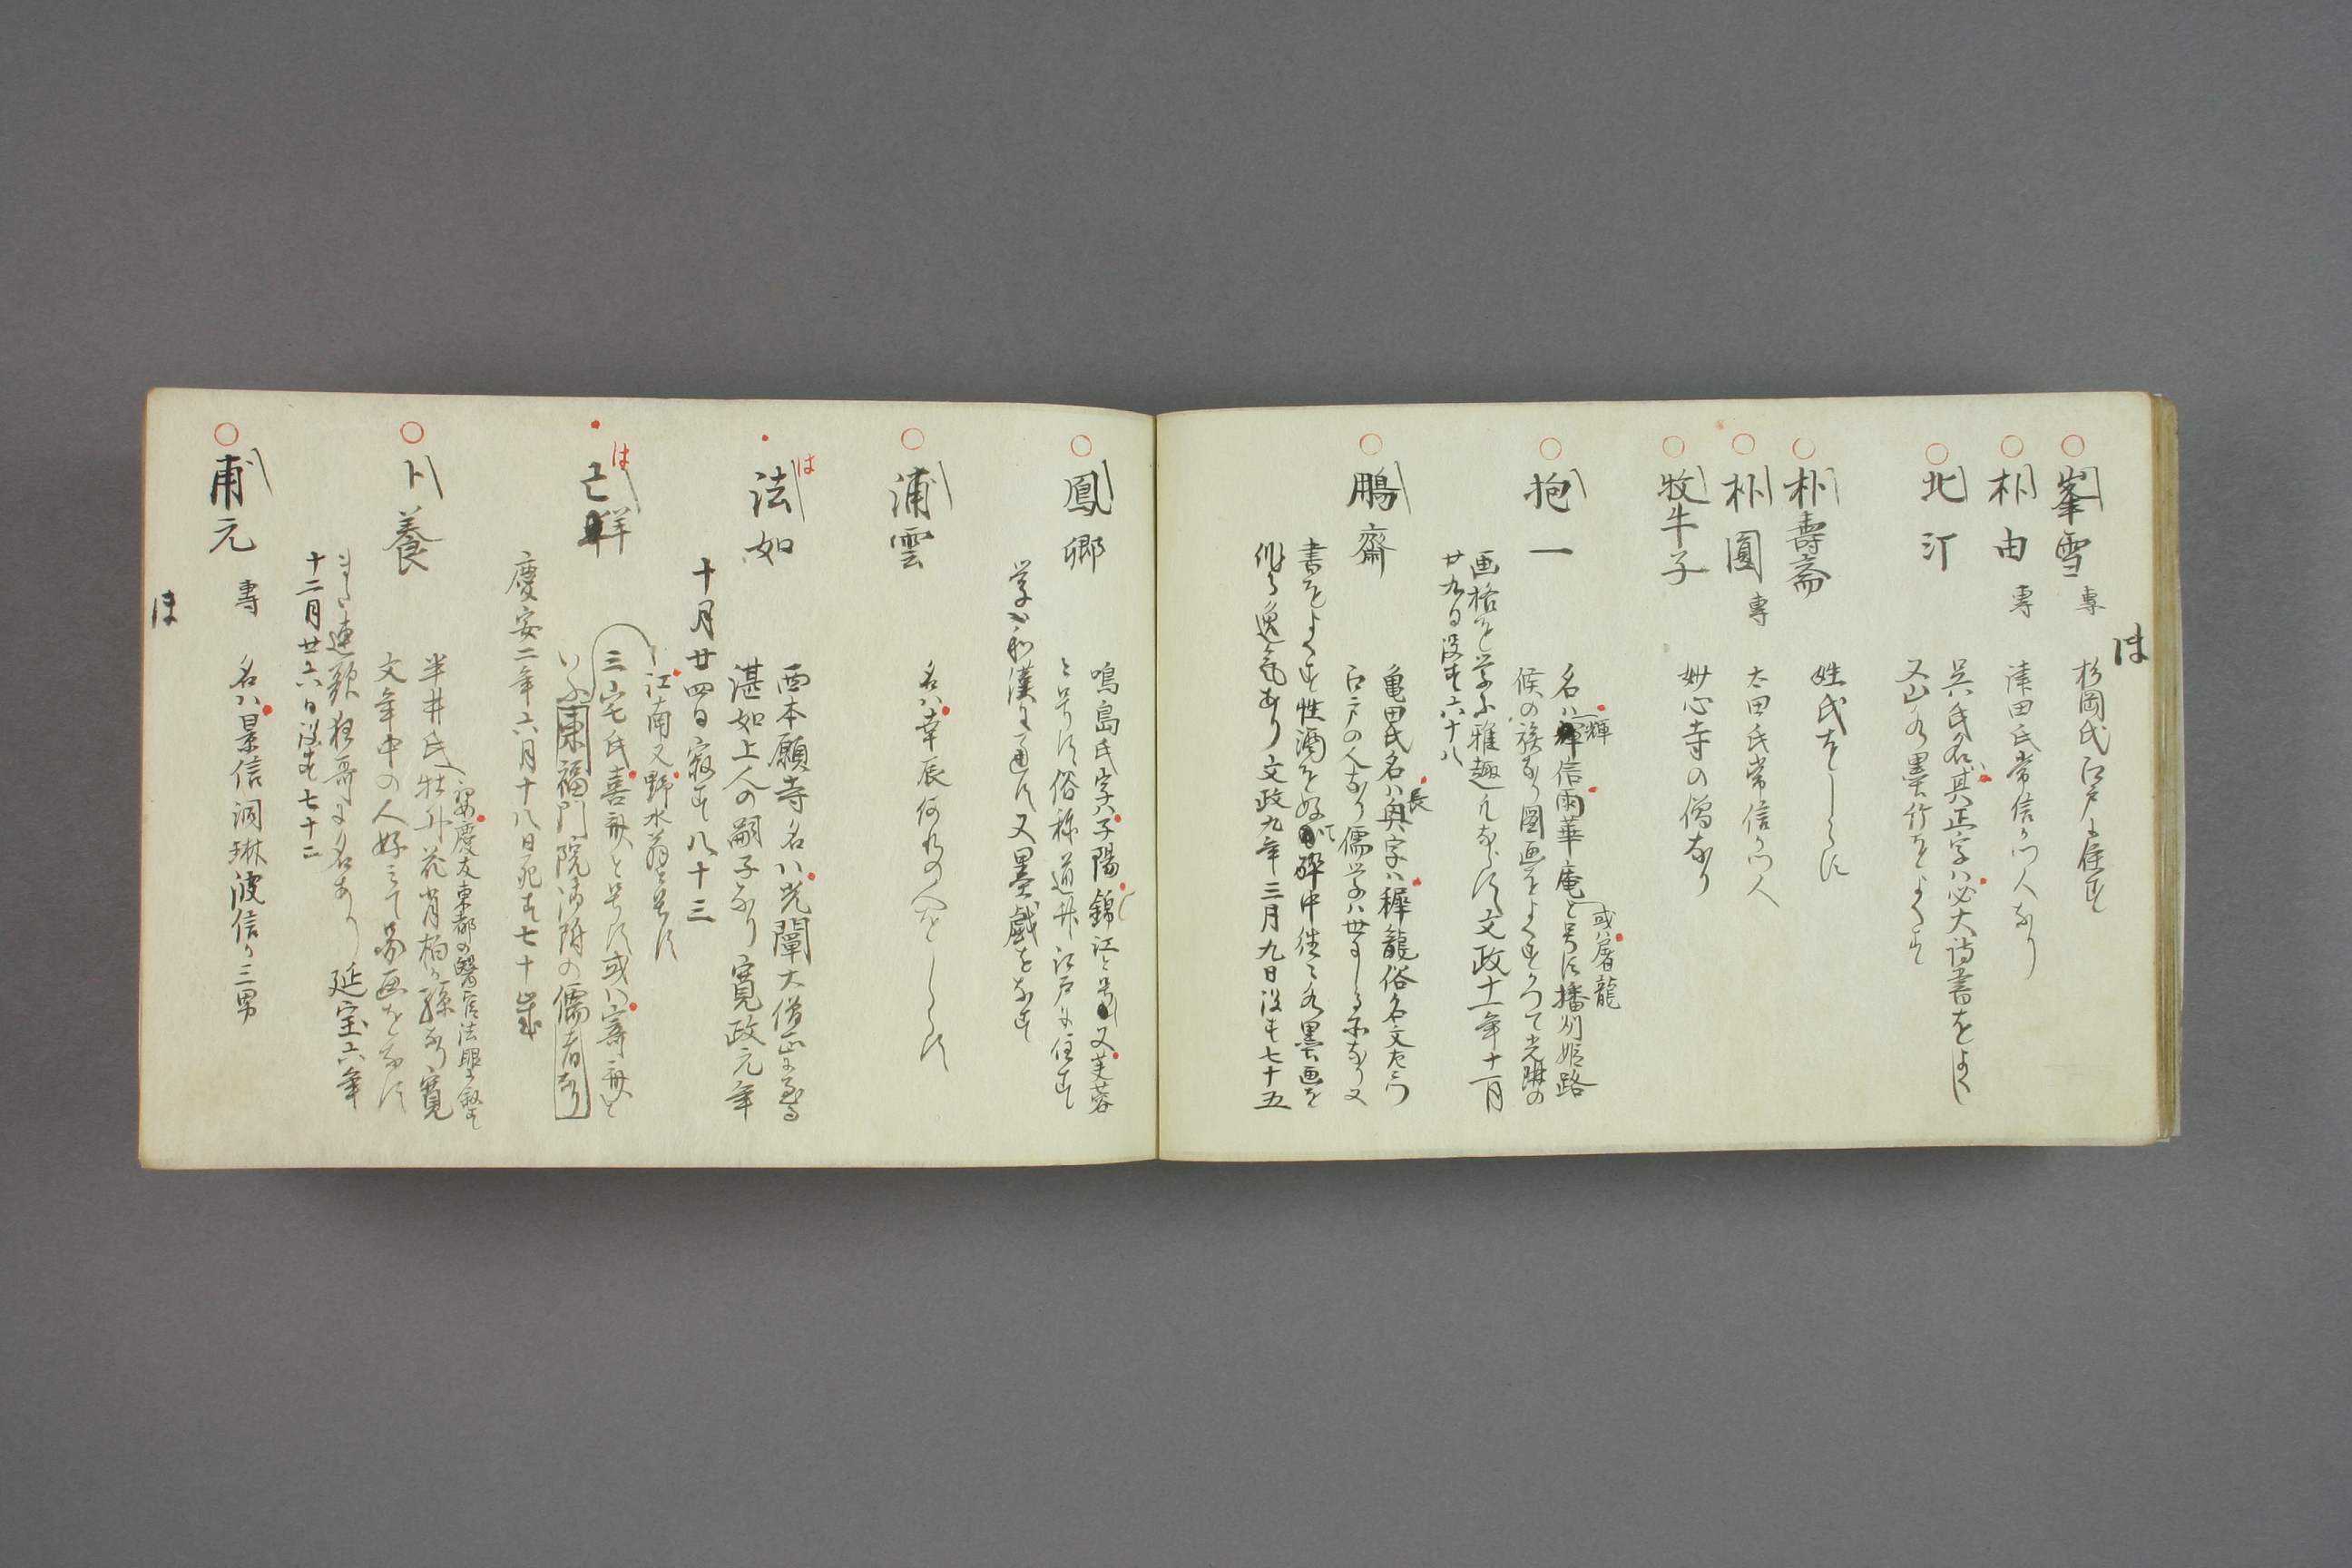 ほ
峯雪 專 杉岡氏江戸に住す
朴由 專 津田氏常信が門人なり
北汀 呉氏名ハ其正字ハ必大詩書をよくし
又山水墨竹をよくす
朴壽斎 姓氏をしらす
朴圓 專 太田氏常信が門人
牧牛子 妙心寺の僧なり
抱一 名ハ輝信雨華庵と号す播州姫路
輝
或ハ屠龍
侯の族なり圖画をよくすかつて光琳の
画格を学ふ雅趣凡ならす文政十一年十一月
廿九日没す六十八
鵬齋 亀田氏名ハ興字ハ穉龍俗名文左エ門
長
江戸の人なり儒学ハ世にしる所なり又
書をよくす性酒を好て酔中往々水墨画を
作る逸気あり文政九年三月九日没す七十五
鳳卿 鳴島氏字ハ子陽錦江と号し又芙蓉
と号す俗称道筑江戸に住す
学ハ和漢に通す又墨戯をなす
浦雲 名ハ幸辰何れの人をしらす
は
法如 西本願寺名ハ光闡大僧正に至る
湛如上人の嗣子なり寛政元年
十月廿四日寂す八十三
は
亡羊
江南又野水翁と号す
三宅氏喜斎と号す或ハ寄斎と
いふ東福門院御附の儒者なり
慶安二年六月十八日死す七十歳
卜養
名ハ慶友東都の醫官法眼に叙す
半井氏牡丹花肖柏が孫なり寛
文年中の人好ミて畧画をなす
また連歌狂哥に名あり延宝六年
十二月廿六日没す七十二
甫元 專 名ハ景信洞琳波信が三男
ほ